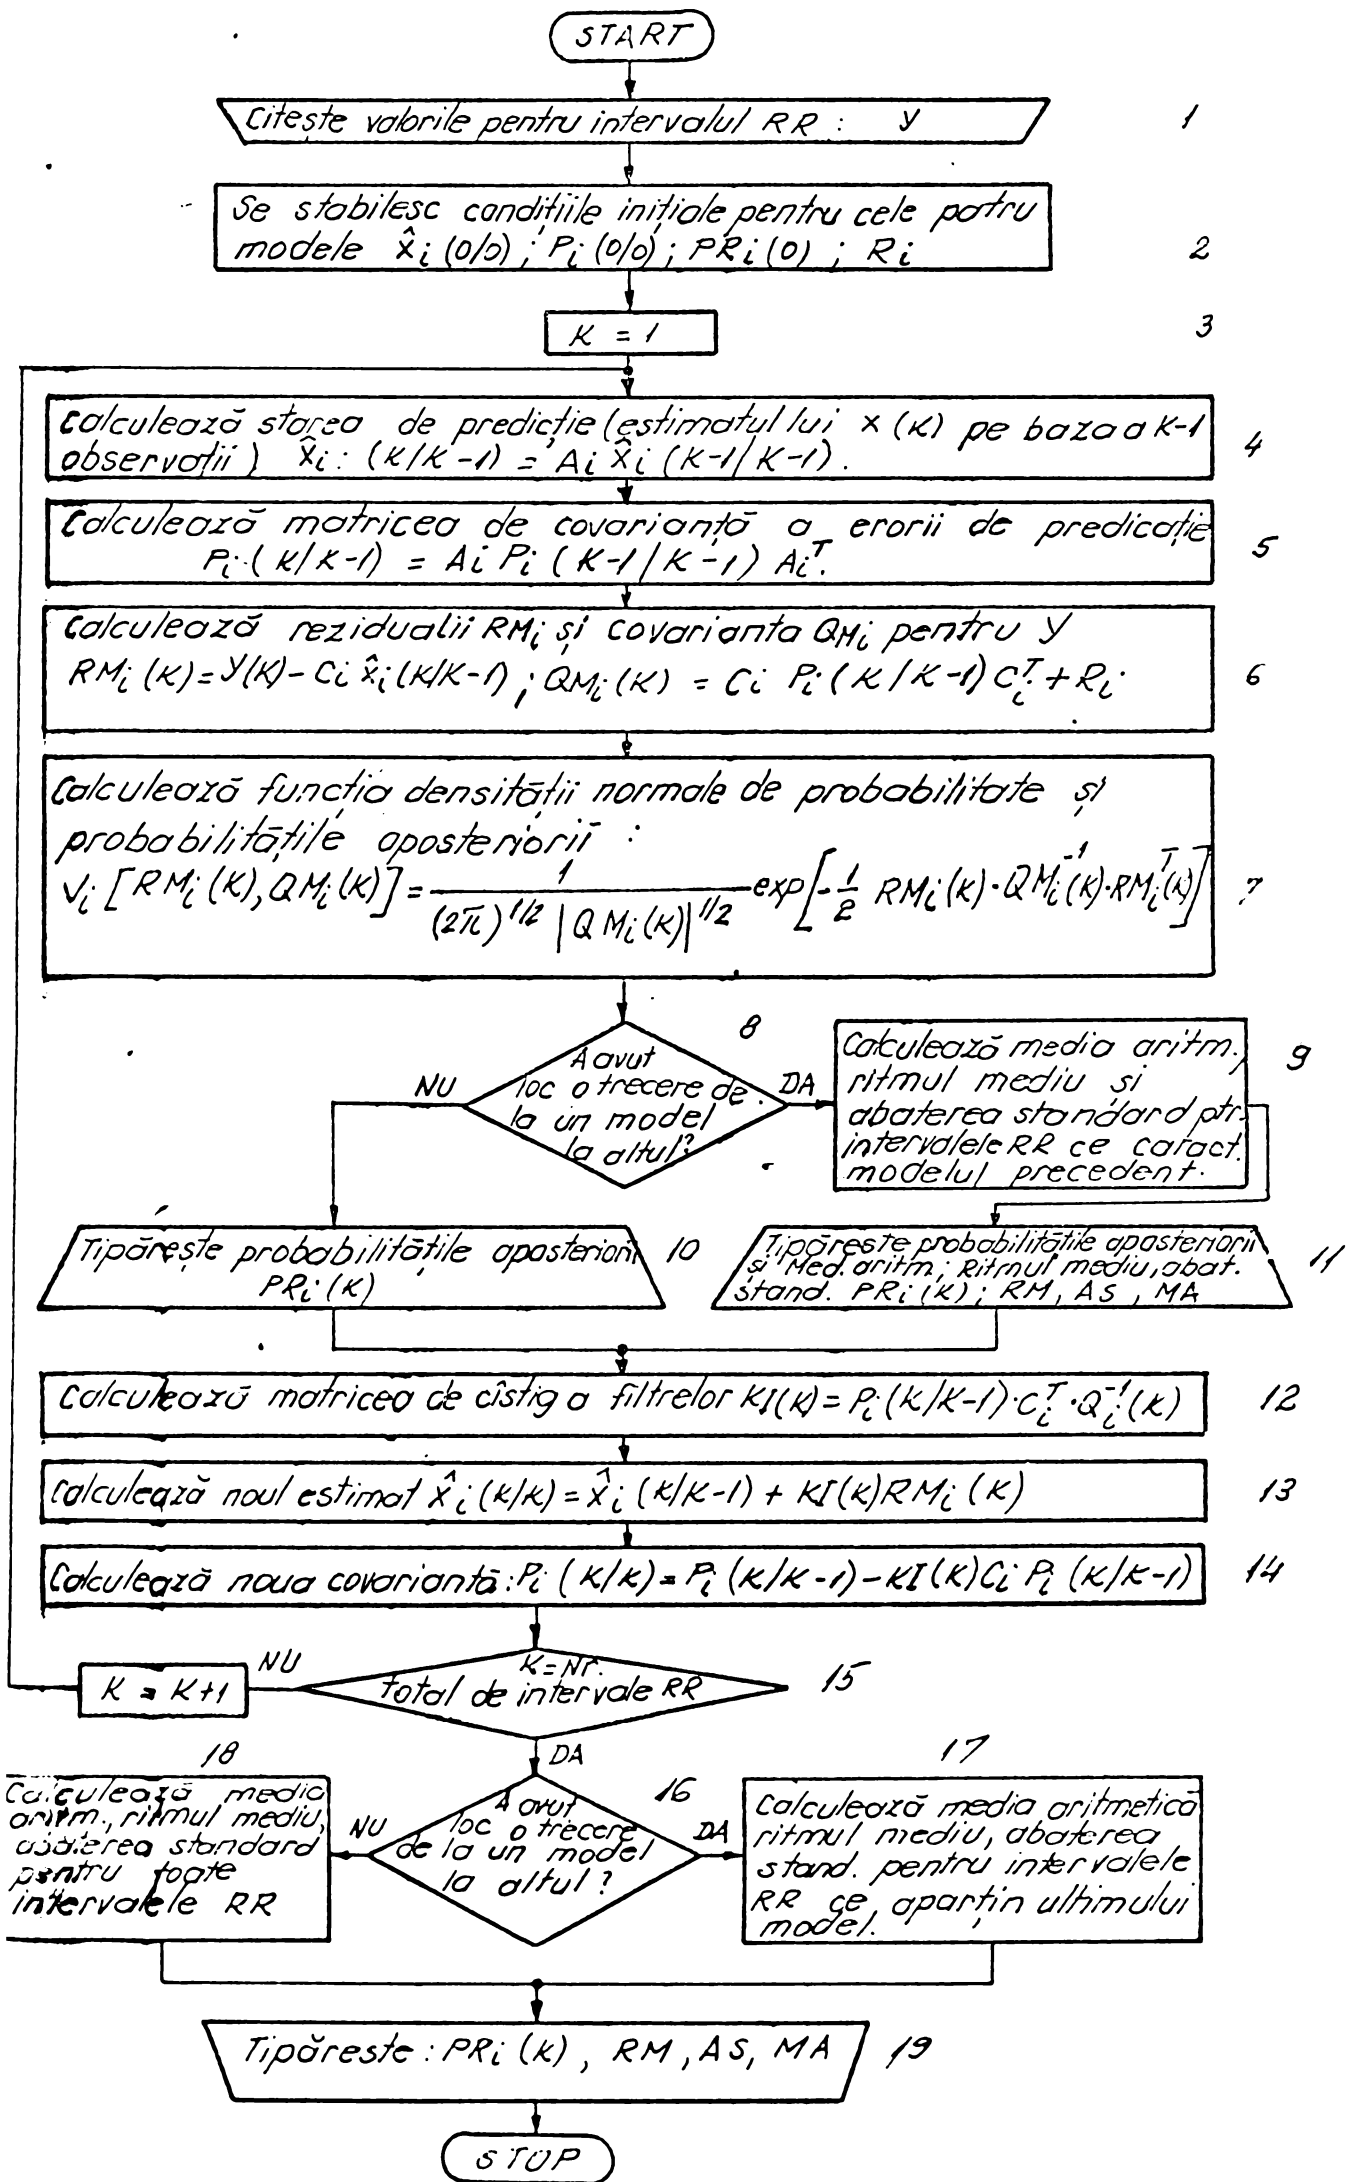 START
Citește valorile pentru intervalul RR : Y
1
Se stabilesc condițiile inițiale pentru cele patru
modele x̂i (0/0) ; Pi (0/0) ; PRi (0) ; Ri
2
K = 1
3
Calculează starea de predicție (estimatul lui x (K) pe baza a K-1
observații) x̂i : (K/K-1) = Ai x̂i (K-1/K-1).
4
Calculează matricea de covarianță a erorii de predicație
Pi (K/K-1) = Ai Pi (K-1/K-1) Ai^T.
5
Calculează rezidualii RMi și covarianta QMi pentru Y
RMi (K) = Y(K) - Ci x̂i (K/K-1) ; QMi (K) = Ci Pi (K/K-1) Ci^T + Ri
6
Calculează funcția densității normale de probabilitate și
probabilitățile aposteriorii :
Vi [RMi (K), QMi (K)] = 1 / ((2π)^1/2 |QMi (K)|^1/2) exp[-1/2 RMi (K) · QMi^-1 (K) · RMi^T (K)]
7
8
A avut
loc o trecere de
la un model
la altul?
NU
DA
Calculează media aritm.,
ritmul mediu și
abaterea standard ptr.
intervalele RR ce caract.
modelul precedent.
9
Tipărește probabilitățile aposteriorii
PRi (K)
10
Tipărește probabilitățile aposteriorii
și Med. aritm; Ritmul mediu, abat.
stand. PRi (K) ; RM, AS, MA
11
Calculează matricea de cîstig a filtrelor KI(K) = Pi (K/K-1) · Ci^T · Qi^-1 (K)
12
Calculează noul estimat x̂i (K/K) = x̂i (K/K-1) + KI(K) RMi (K)
13
Calculează noua covariantă : Pi (K/K) = Pi (K/K-1) - KI(K) Ci Pi (K/K-1)
14
K = Nr.
total de intervale RR
15
NU
K = K+1
DA
18
Calculează media
aritm., ritmul mediu,
abaterea standard
pentru toate
intervalele RR
NU
A avut
loc o trecere
de la un model
la altul?
16
DA
17
Calculează media aritmetică
ritmul mediu, abaterea
stand. pentru intervalele
RR ce aparțin ultimului
model.
Tipărește : PRi (K), RM, AS, MA
19
STOP